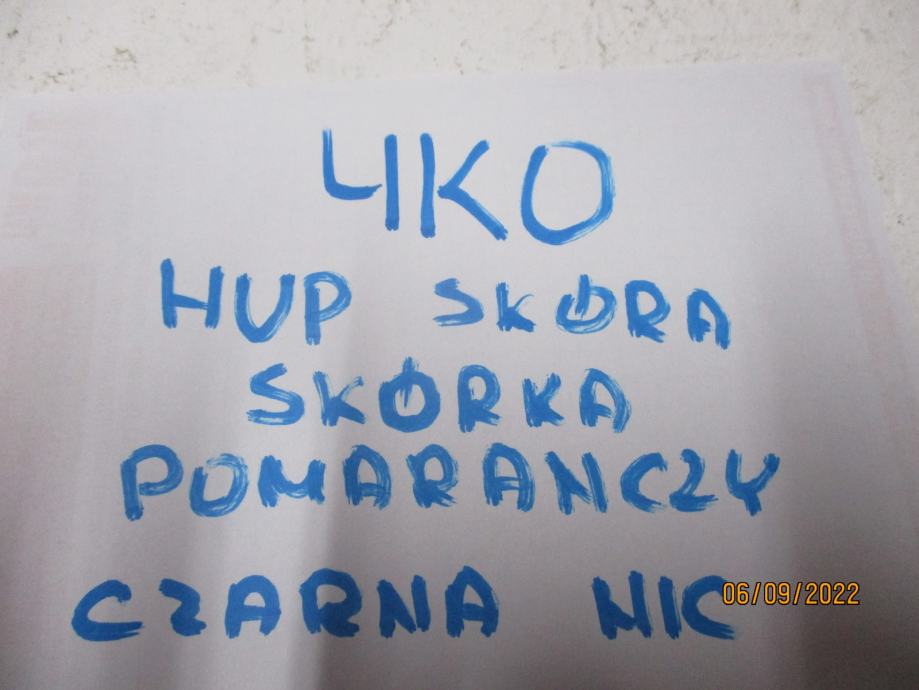 4KO
HUP SKÓRA
SKÓRKA
POMARANCZY
CZARNA NIC
06/09/2022